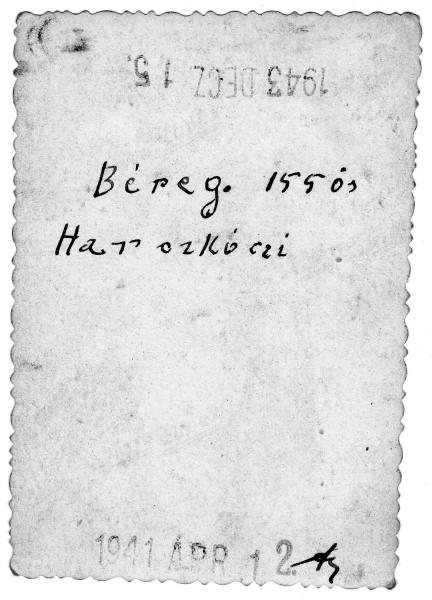 1943 DECZ 15.
Béreg. 155ös
Harczkóczi
1941 APR 12.